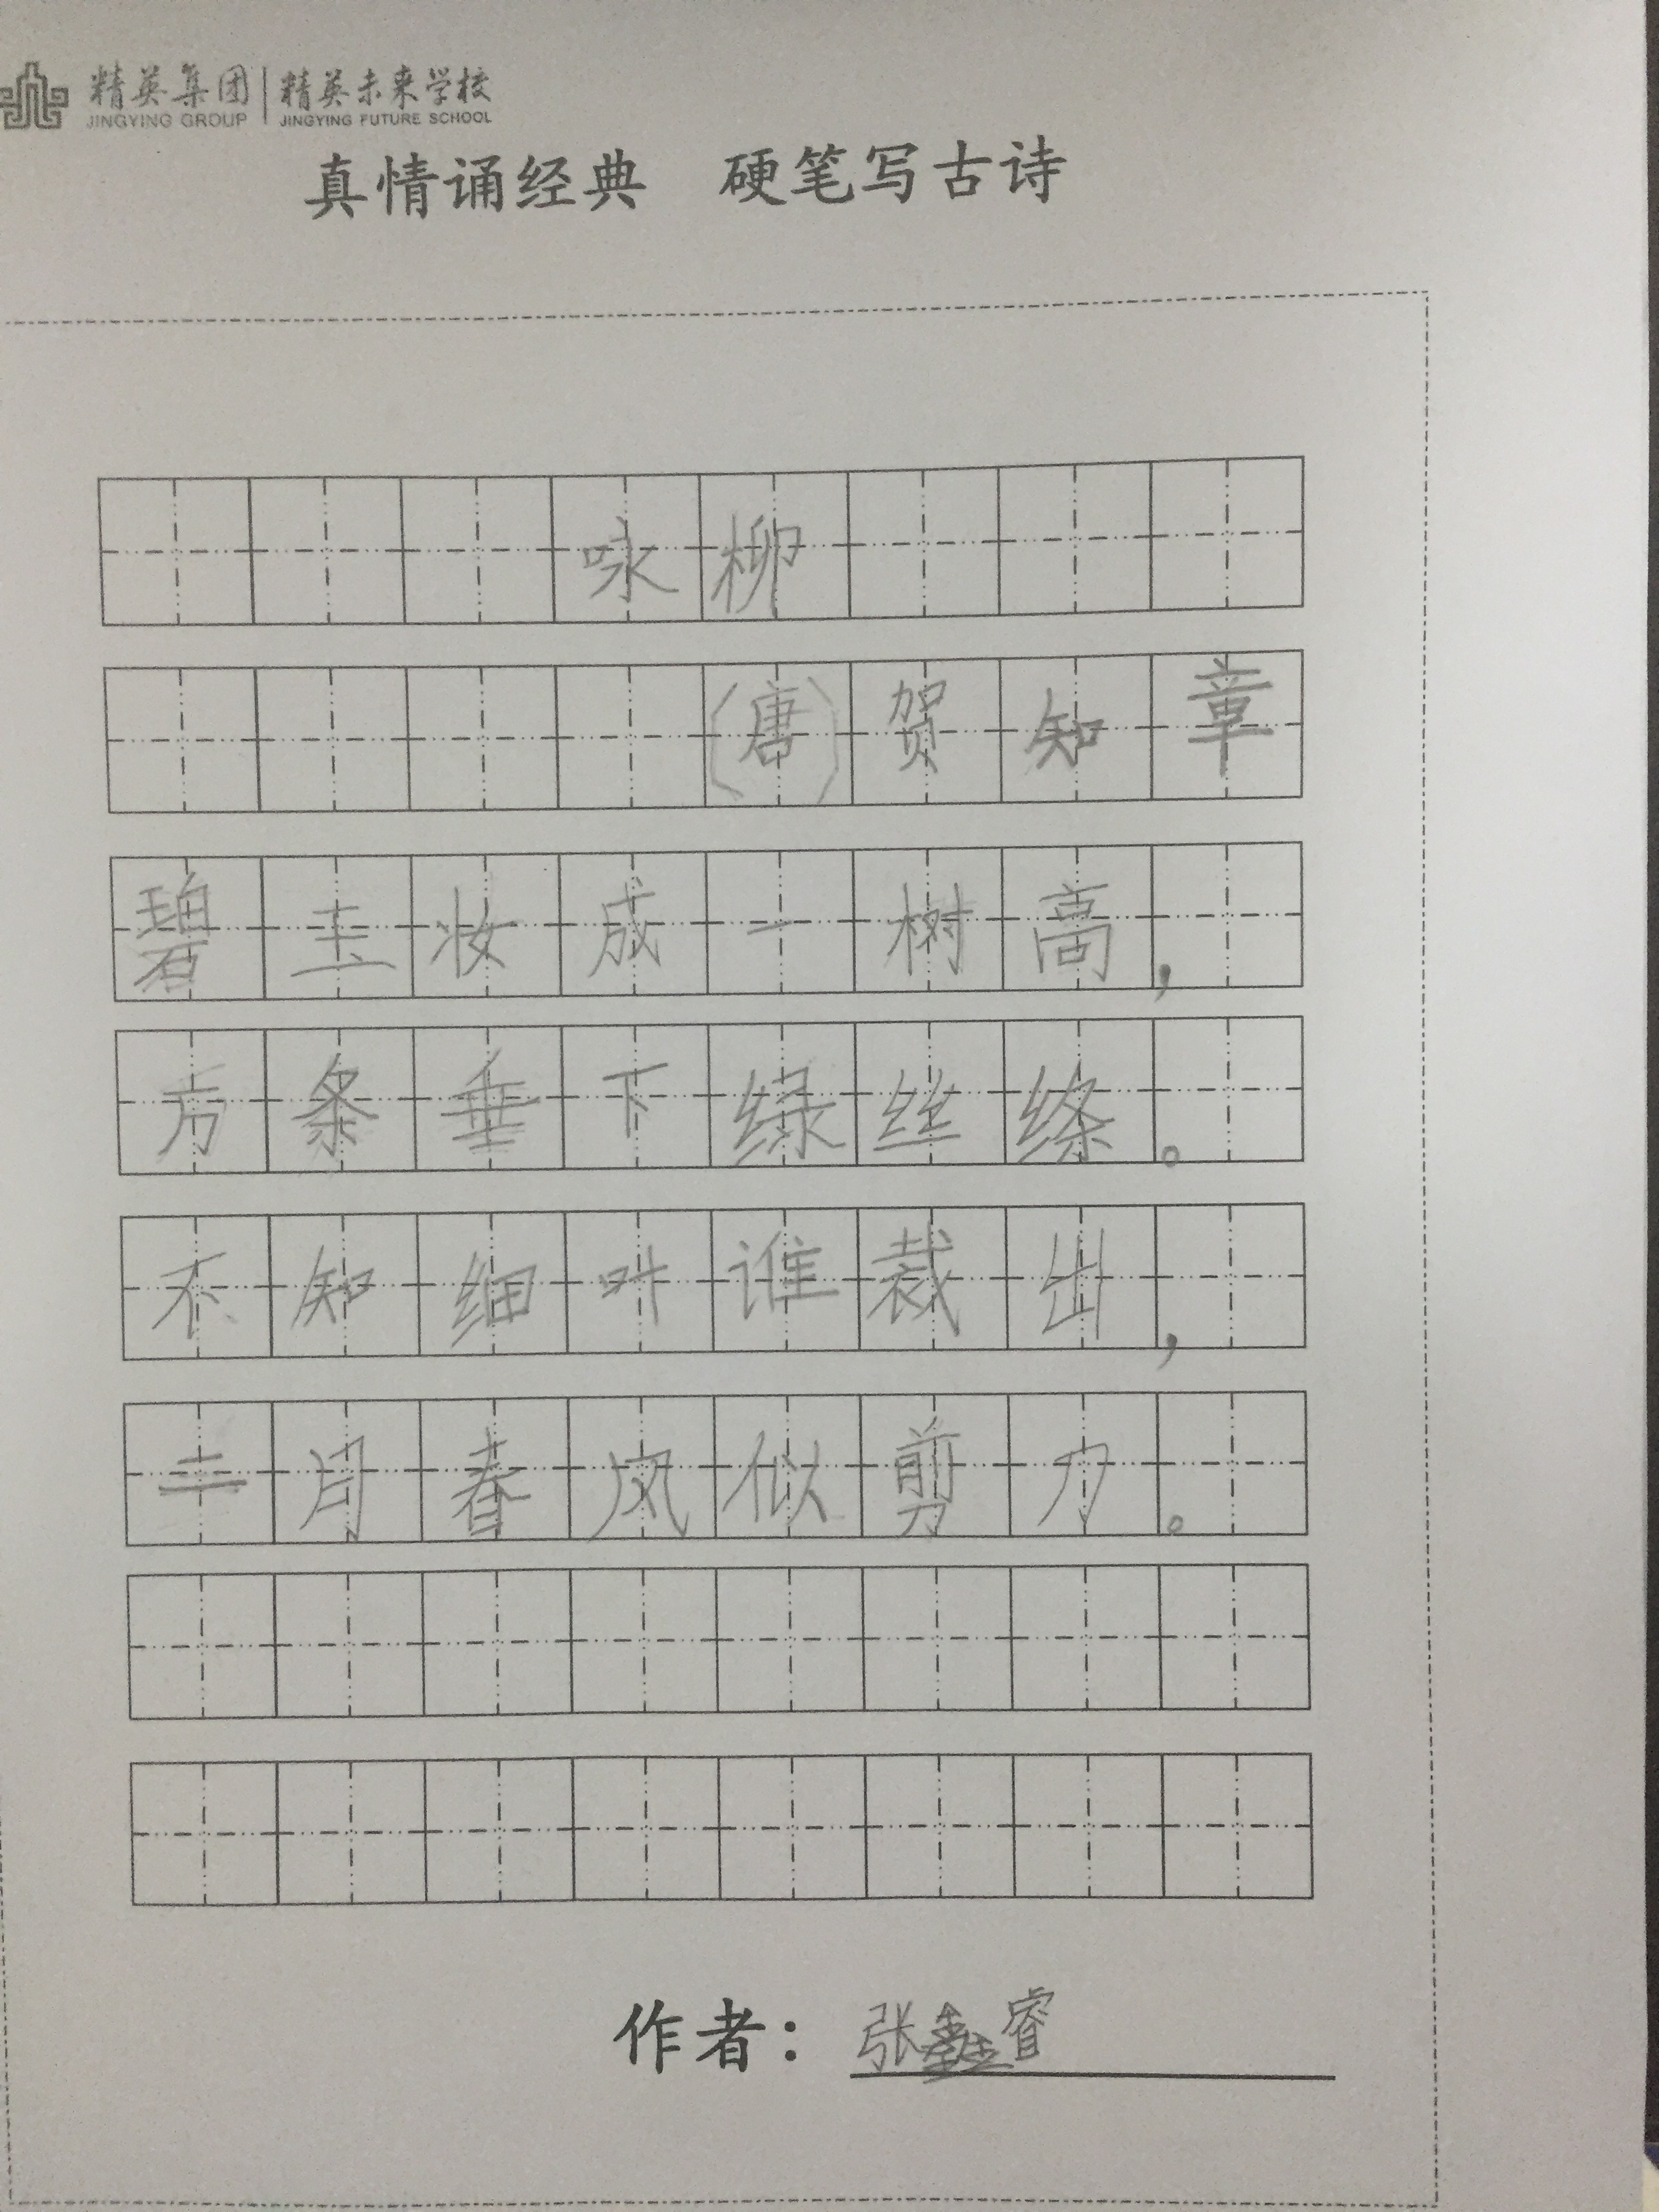 精英集团 精英未来学校
JINGYING GROUP JINGYING FUTURE SCHOOL
真情诵经典 硬笔写古诗
咏柳
(唐)贺知章
碧玉妆成一树高,
万条垂下绿丝绦。
不知细叶谁裁出,
二月春风似剪刀。
作者:张鑫睿